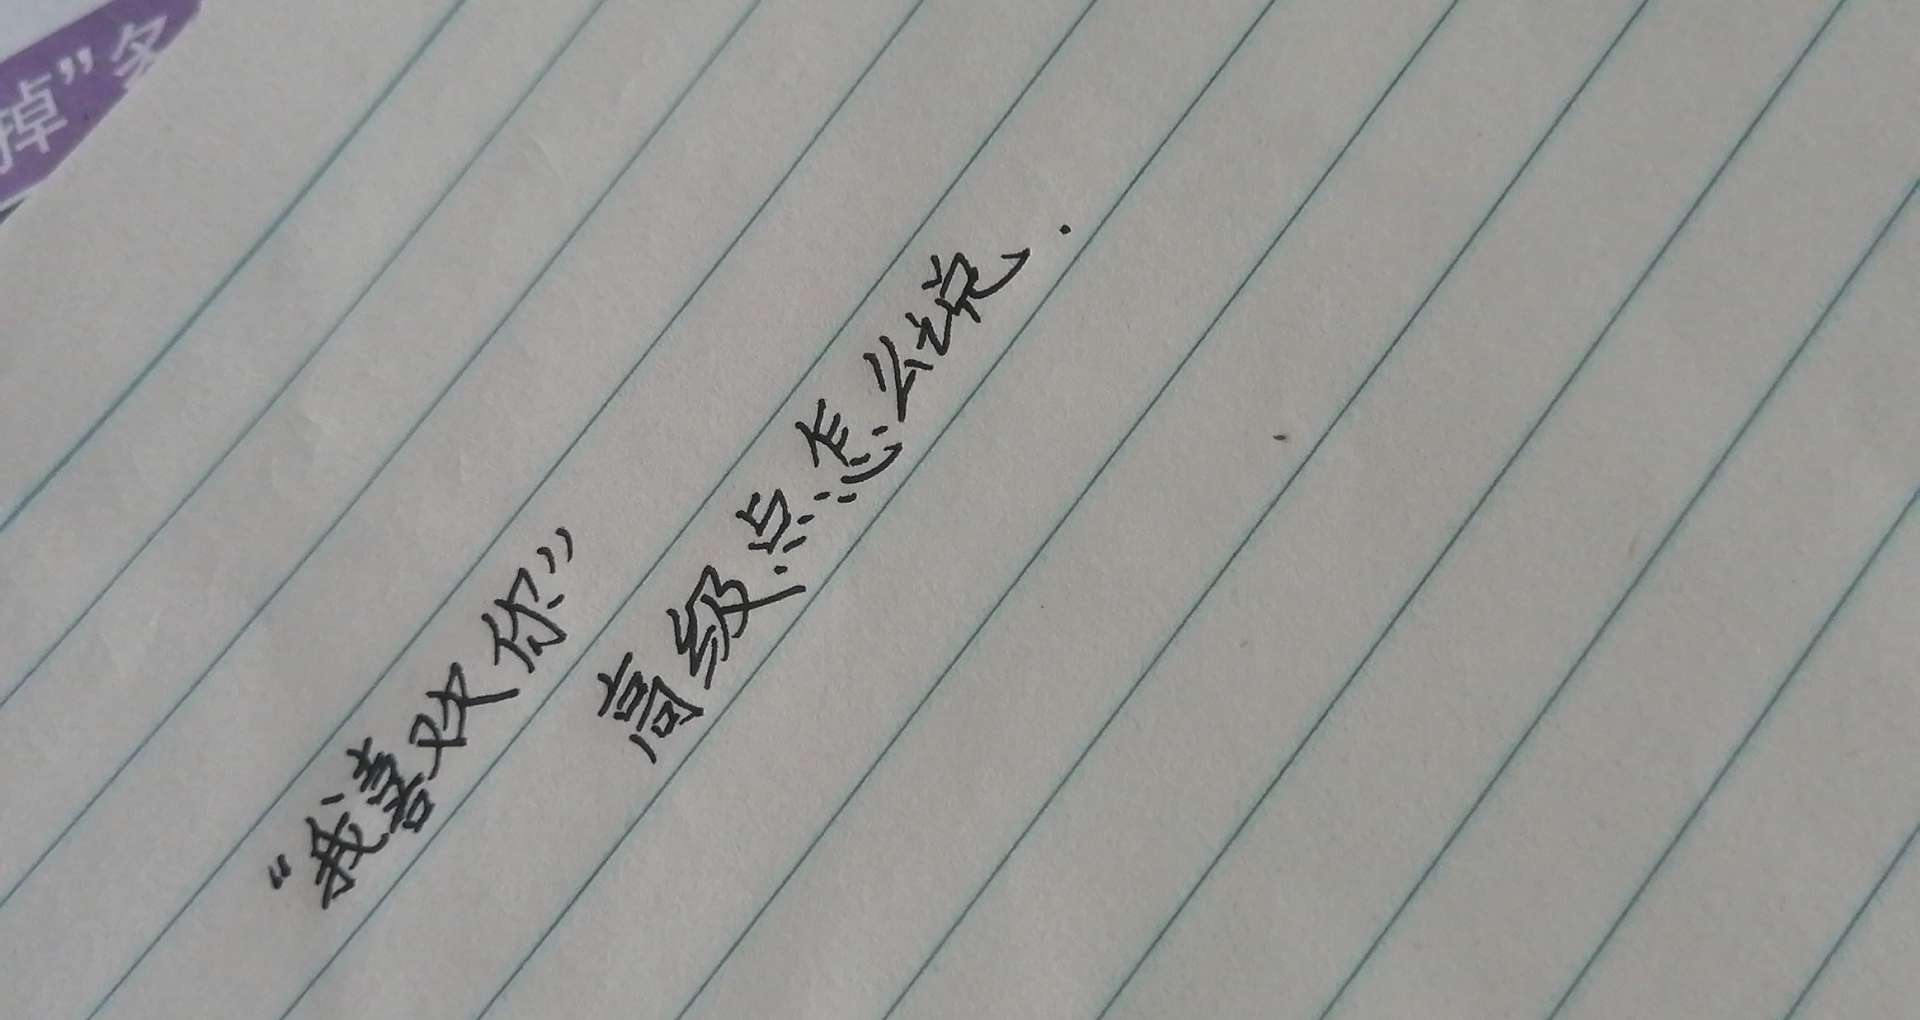 掉”多
“我喜欢你”
高级点怎么说.